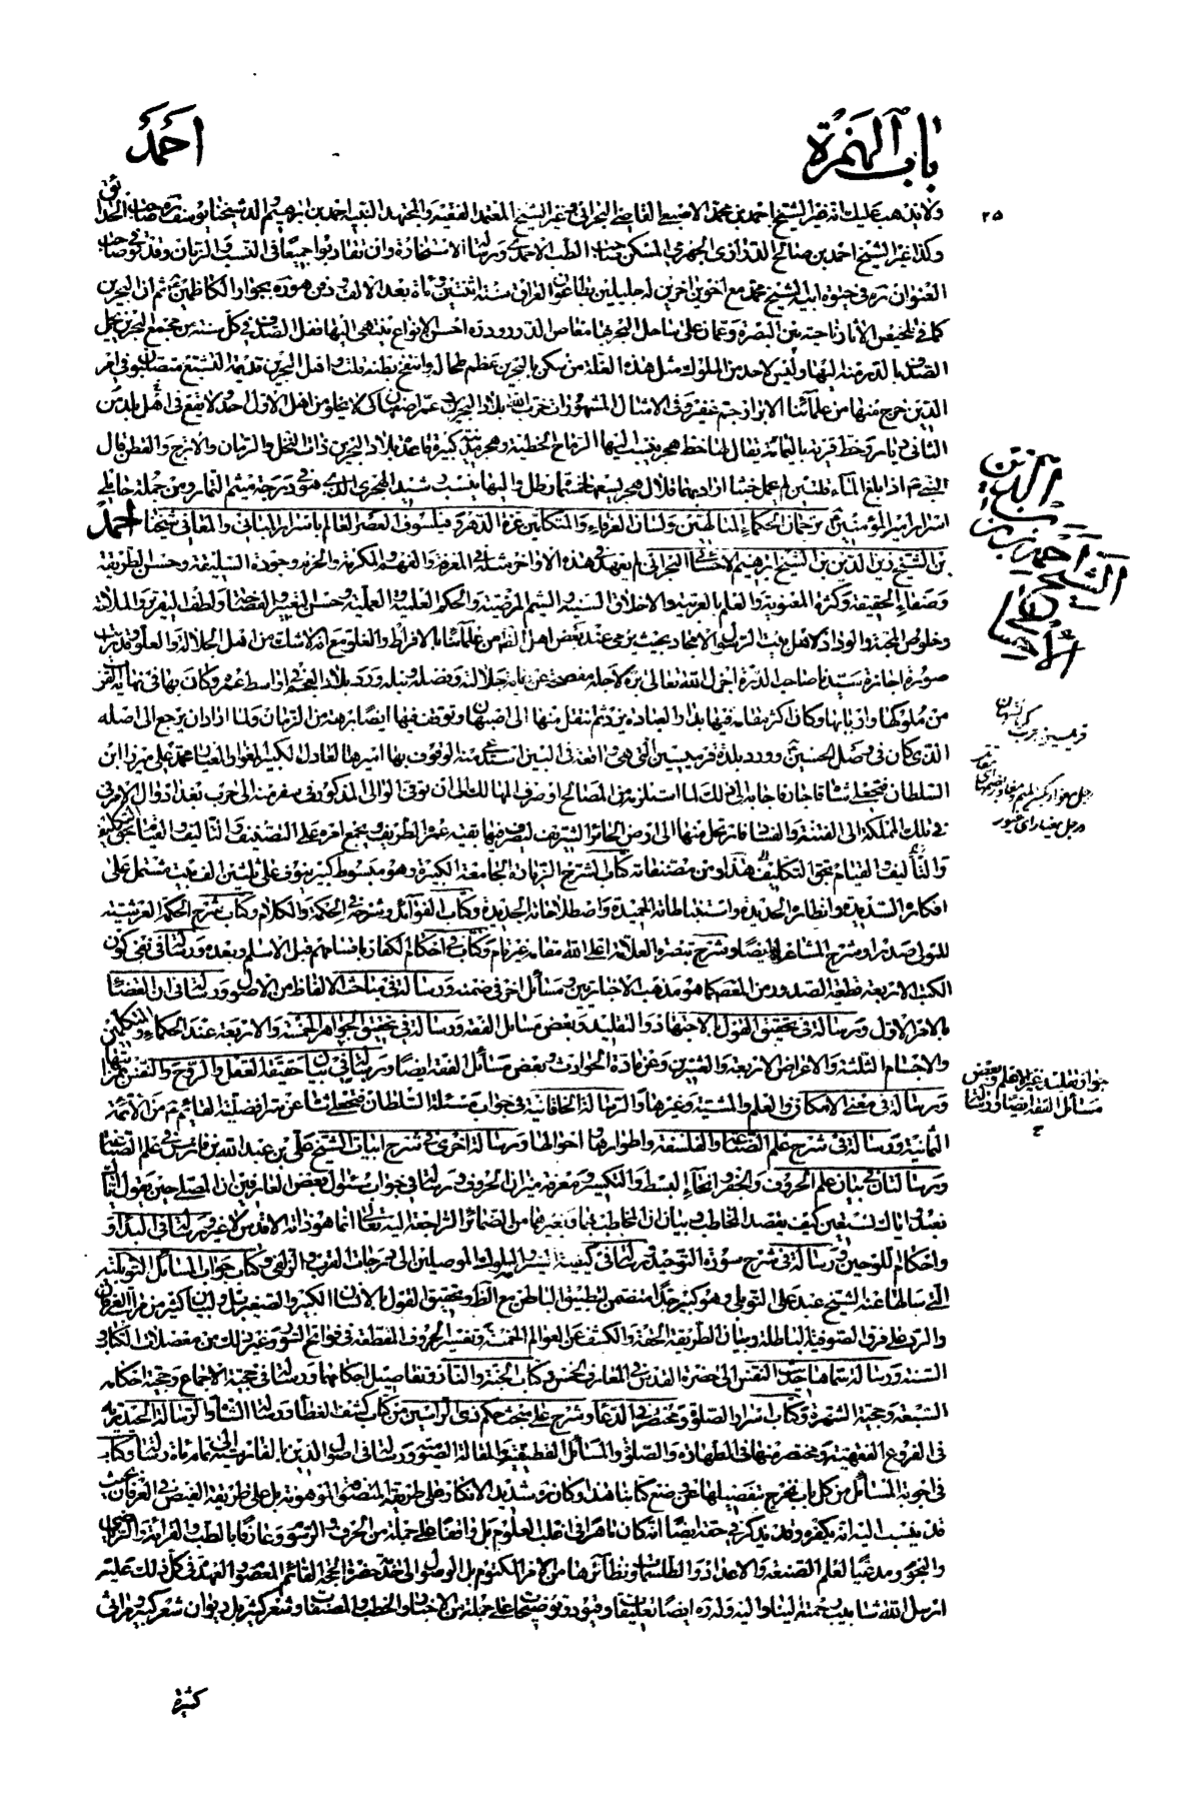 باب الهمزة
احمد
٢٥
ولا يذهب عليك انه غير الشيخ احمد بن محمد الاصبعي القاضي البحراني وغير الشيخ المعتمد الفقيه والمجتهد النبيه احمد بن ابرهيم الد شيخنا يوسف ره صاحب الحدائق
وكذا غير الشيخ احمد بن صالح الدرازي الجهرمي المسكن صاحب الطب الاحمدي ورسالة الاستخارة وان تقاربوا جميعا في النسب والزمان وقد توفي صاحب
العنوان ره في حيوة ابيه الشيخ محمد مع اخوين اخرين له جليلين بطاعون العراق سنة اثنتين ومأة بعد الالف ودفن هو ره بجوار الكاظمين ثم ان البحرين
كما في تلخيص الآثار ناحية بين البصرة وعمان على ساحل البحر بها مغاص الدر ودرره احسن الانواع ينتهي اليها قفل الصدف في كل سنة من مجمع البحرين يحمل
الصدف بالدر منه اليها وليس لاحد من الملوك مثل هذه الغلة من سكن بالبحرين عظم طحاله وانتفخ بطنه قلت واهل البحرين قديمة التشيع متصلبون في امر
الدين خرج منها من علمائنا الابرار جم غفير وفي الامثال المشهورة خرب الله بلاد البحرين وعمر اصفهان كي لا يخلو من اهل الاول احد ولا يقع في اهل بلد من
الثاني ديار وخط قرية باليمامة يقال لها خط هجر ينسب اليها الرماح الخطية وهجر مدينة كبيرة قاعدة بلاد البحرين ذات النخل والرمان والاترج والقطن قال
النبي ص اذا بلغ الماء قلتين لم يحمل خبثا اراد بهما قلال هجر يسع احدهما رطل واليها ينسب رشيد الهجري الذي هو في درجة ميثم التمار ومن جملة حاملي
اسرار امير المؤمنين ع ترجمان الحكماء المتألهين ولسان العرفاء والمتكلمين غرة الدهر وفيلسوف العصر العالم باسرار المباني والمعاني شيخنا احمد
بن الشيخ زين الدين بن الشيخ ابرهيم الاحسائي البحراني لم يعهد في هذه الاواخر مثله في المعرفة والفهم والمكرمة والحزم وجودة السليقة وحسن الطريقة
وصفاء الحقيقة وكثرة المعنوية والعلم بالعربية والاخلاق السنية والشيم المرضية والحكم العلمية والعملية وحسن التعبير والفصاحة ولطف التقرير والملاحة
وخلوص المحبة والوداد لاهل بيت الرسول الامجاد بحيث يرمى عند بعض اهل الظاهر من علمائنا بالافراط والغلو مع انه لا شك من اهل الجلالة والعلو وقد رايت
صورة اجازة سيدنا صاحب الدرة اجزل الله تعالى بره لاجله مفصحة عن غاية جلالته وفضله ونبله ورد بلاد العجم في اواسط عمره وكان بها في نهاية القرب
من ملوكها واربابها وكان اكثر مقامه فيها بدار العبادة يزد ثم انتقل منها الى اصبهان وتوقف فيها ايضا برهة من الزمان ولما اراد ان يرجع الى اصله
الذي كان في وصل الحسين ع وورد بلدة قرميسين التي هي واقعة في البين استدعى منه الوقوف بها اميرها العادل الكبير المغوار الغياث محمد علي ميرزا ابن
السلطان فتحعلي شاه قاجار فاجابه الى ذلك لما استلزمه من المصالح او صرف المهالك الى ان توفي الوالي المذكور في سفرته الى حرب بغداد وال الامر في
في تلك المملكة الى الفتنة والفساد فارتحل منها الى ارض الحائر الشريف ليصرف فيها بقية عمره الطريف ويجمع امره على التصنيف والتأليف
والتأليف والقيام بحق التكليف هذا ومن مصنفاته كتاب شرح الزيارة الجامعة الكبيرة وهو مبسوط كبير ينوف على ثلثين الف بيت مشتمل على
افكاره السديدة وانظاره الحديدة واستنباطاته الحميدة واصطلاحاته الجديدة وكتاب الفوائد وشرحه في الحكمة والكلام وكتاب شرح الحكمة العرشية
للمولى صدرا وشرح المشاعر له ايضا وشرح تبصرة العلامة اعلى الله مقامه غير تام وكتاب في احكام الكفار باقسامهم قبل الاسلام وبعده ورسالة في نفي كون
الكتب الاربعة قطعية الصدور من المعصوم كما هو مذهب الاخباريين ومسائل اخر في ضمنه ورسالة في مباحث الالفاظ من الاصول ورسالة في ان القضاء
بالامر الاول ورسالة في تحقيق القول بالاجتهاد والتقليد وبعض مسائل الفقه ورسالة في تحقيق الجواهر الخمسة والاربعة عند الحكماء والمتكلمين
والاجسام الثلثة والاعراض الاربعة والعشرين وعن مادة الحوادث وبعض مسائل الفقه ايضا ورسالة في بيان حقيقة العقل والروح والنفس بمراتبها
ورسالة في معنى الامكان والعلم والمشية وغيرها والرسالة الخاقانية في جواب مسئلة السلطان فتحعلي شاه عن سر افضلية القائم ع من الائمة
الثمانية ورسالة في شرح علم الصناعة والفلسفة واطوارها واحوالها ورسالة اخرى في شرح ابيات الشيخ علي بن عبد الله بن فارس في علم الصناعة
ورسالتان في بيان علم الحروف والجفر وانحاء البسط والتكسير ومعرفة ميزان الحروف ورسالة في جواب سئوال بعض العارفين ان المصلي حين يقول اياك
نعبد واياك نستعين كيف يقصد المخاطب وبيان ان المخاطب بهما وبغيرهما من الضمائر الراجعة اليه تعالى انما هو ذاته الاقدس لا غير ورسالة في البداء و
واحكام اللوحين ورسالة في شرح سورة التوحيد ورسالة في كيفية السير والسلوك الموصلين الى درجات القرب والزلفى وكتاب جواب المسائل التوبلية
التي سألها عنه الشيخ عبد علي التوبلي وهو كبير جدا متضمن لتطبيق الباطن مع الظاهر وتحقيق القول بالانسان الكبير والصغير وبيان كثير من مراتب العرفان
والرد على فرق الصوفية الباطلة وبيان الطريقة الحقة والكشف عن العوالم الخمسة وتفسير الحروف المقطعة في فواتح السور وغير ذلك من معضلات الكتاب و
السنة ورسالة سماها حيوة النفس الى حضرة القدس في المعارف الخمس وكتاب الجنة والنار وتفاصيل احكامهما ورسالة في حجية الاجماع وحجية احكامه
السبعة وحجية الشهرة وكتاب اسرار الصلوة ومختصر في الدعاء وشرح على مبحث حكم ذي الراسين من كتاب كشف الغطاء ورسالة النشاة والرسالة الحيدرية
في الفروع الفقهية ومختصر منها في الطهارة والصلوة والمسائل القطيفية والمقالة الصومية ورسالة في اصول الدين بالفارسية الى تمام مأة رسالة وكتاب
في اجوبة المسائل من كل باب يخرج تفصيلها عن وضع كتابنا هذا وكان ره شديد الانكار على طريقة المتصوفة الموهونة بل على طريقة الفيض في العرفان بحيث
قد ينسب اليه انه يكفره وقد يذكر في حقه ايضا انه كان ماهرا في اغلب العلوم بل واقفا على جملة من الحرف والرسوم وعارفا بالطب والقرائة والرياضي
والنجوم ومدعيا لعلم الصنعة والاعداد والطلسمات ونظائرها من الامر المكتوم بل الوصول الى خدمة حضرة الحجة القائم المعصوم والعهدة في كل ذلك عليه
ارسل الله شابيب رحمته الينا واليه وله ره ايضا تعليقات وقيود وتوضيحات على جملة من الاخبار والخطب والمصنفات وشعر كثير بل ديوان شعر كبير ومراثي
كثيرة
الشيخ احمد بن زين الدين
الأحسائي
قرميسين معرب كرمانشاهان
جواز تقليد غير الاعلم وبعض
مسائل الفقه ايضا ورسالة